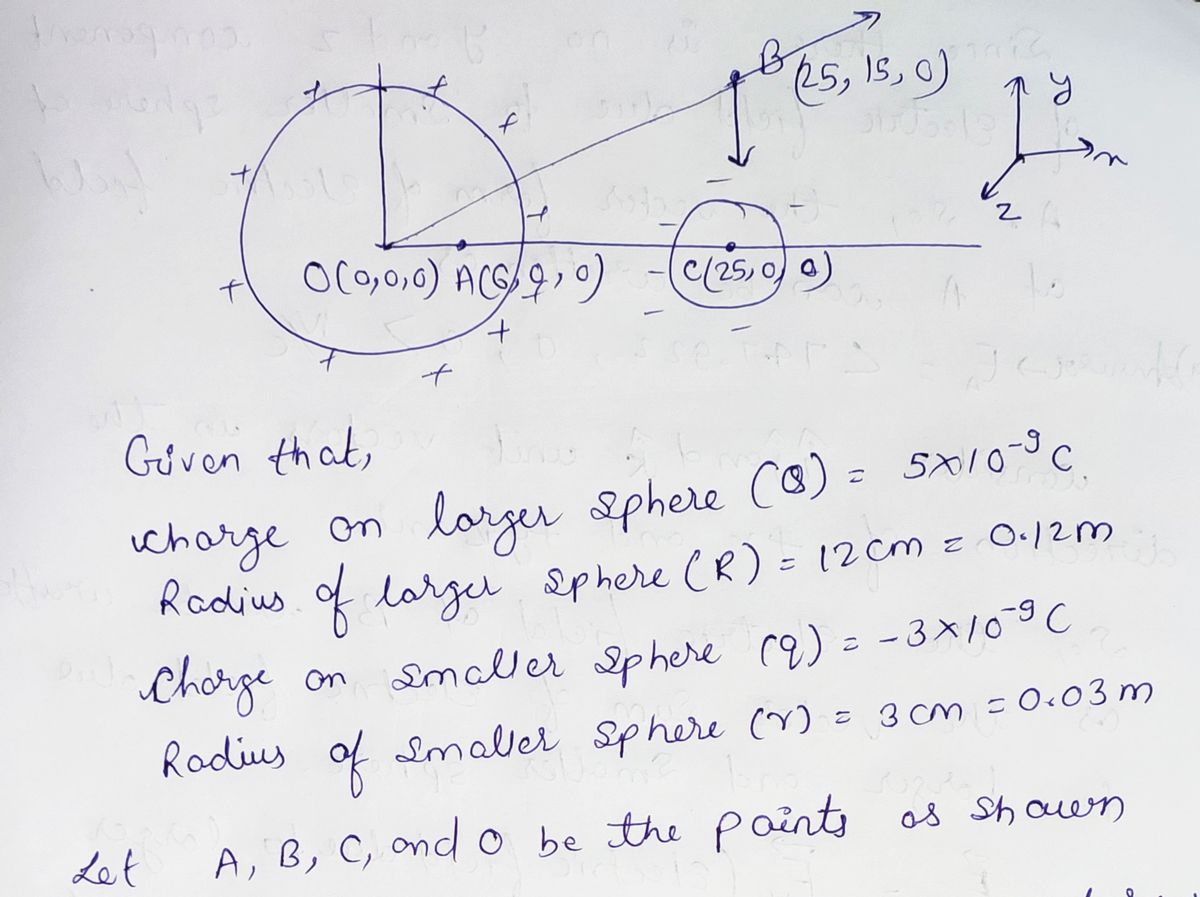 B (25, 15, 0)
y
x
z
O(0,0,0) A(6,0,0) C(25,0,0)
Given that,
charge on larger sphere (Q) = 5×10⁻⁹ C
Radius of larger sphere (R) = 12 cm = 0.12 m
Charge on smaller sphere (q) = -3×10⁻⁹ C
Radius of smaller sphere (r) = 3 cm = 0.03 m
Let A, B, C, and O be the points as shown